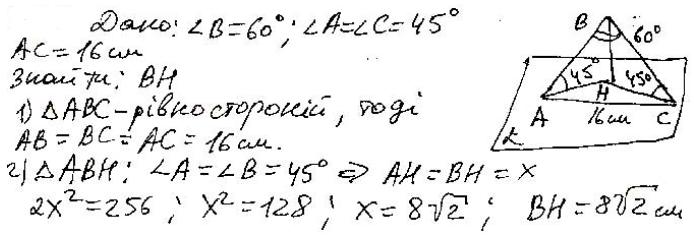 Дано: ∠B=60°; ∠A=∠C=45°
AC=16см
Знайти: BH
1) △ABC – рівносторонній, тоді
AB=BC=AC=16см.
2) △ABH: ∠A=∠B=45° ⇒ AH=BH=x
2x²=256; x²=128; x=8√2; BH=8√2 см
B 60°
45° 45°
H
A 16см C
α